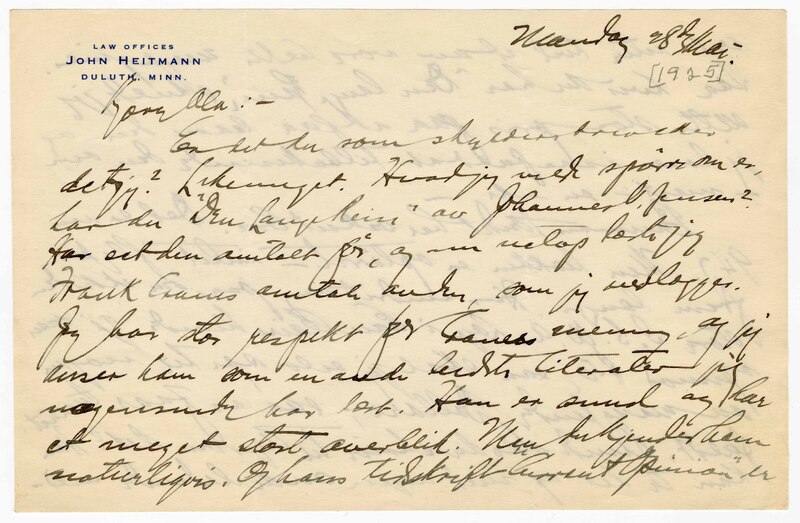 LAW OFFICES
JOHN HEITMANN
DULUTH, MINN.
Mandag 28de Mai.
[1925]
Kjære Ola:-
Er det du som skylder brev eller
det jeg? Likemeget. Hvad jeg vilde spørre om er,
har du "Den Lange Reise" av Johannes V. Jensen?
Har set den omtalt før, og nu netop læste jeg
Frank Cranes omtale av den, som jeg vedlægger.
Jeg har stor respekt for Cranes mening, og jeg
anser ham som en av de bedste literater jeg
nogensinde har læst. Han er sund og har
et meget stort overblik. Men du kjender ham
naturligvis. Og hans tidskrift "Current Opinion" er